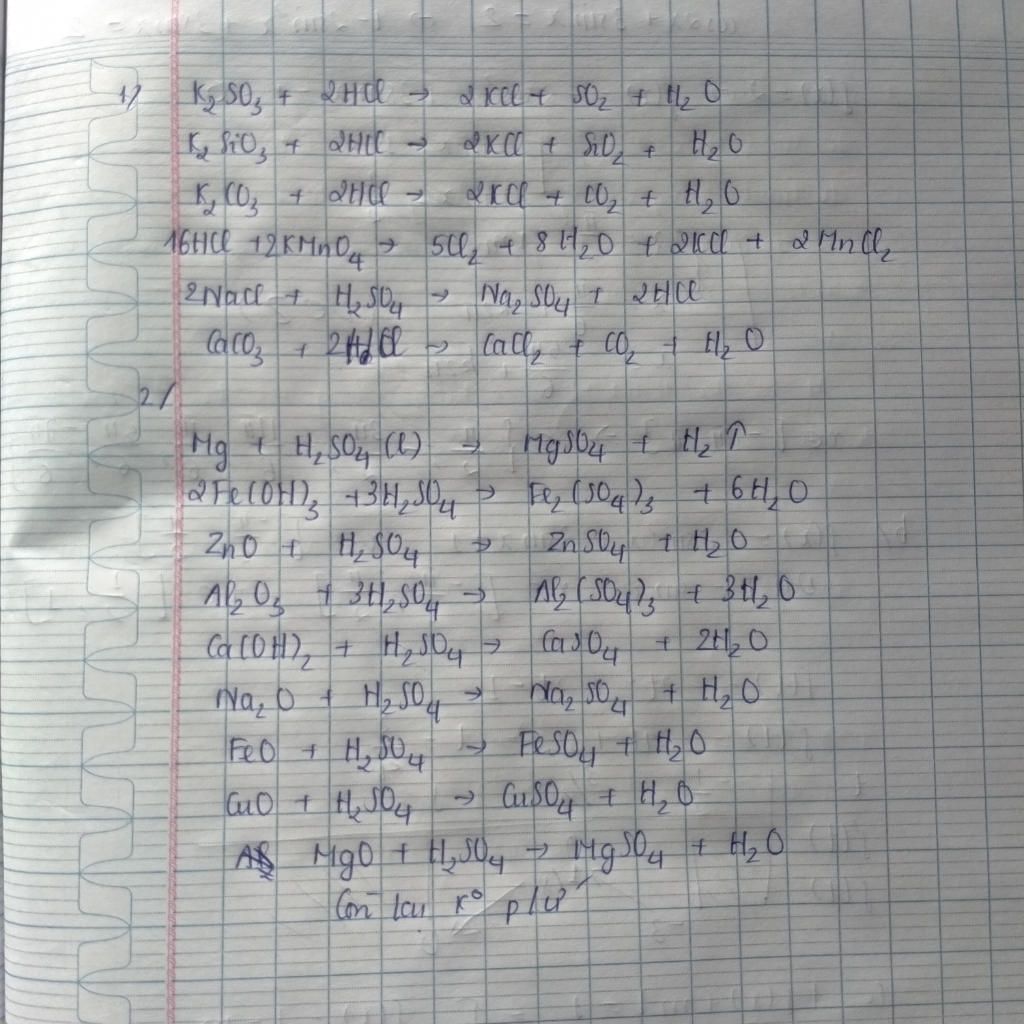 1) K₂SO₃ + 2HCl → 2KCl + SO₂ + H₂O
K₂SiO₃ + 2HCl → 2KCl + SiO₂ + H₂O
K₂CO₃ + 2HCl → 2KCl + CO₂ + H₂O
16HCl + 2KMnO₄ → 5Cl₂ + 8H₂O + 2KCl + 2MnCl₂
2NaCl + H₂SO₄ → Na₂SO₄ + 2HCl
CaCO₃ + 2HCl → CaCl₂ + CO₂ + H₂O
2/
Mg + H₂SO₄ (l) → MgSO₄ + H₂ ↑
2Fe(OH)₃ + 3H₂SO₄ → Fe₂(SO₄)₃ + 6H₂O
ZnO + H₂SO₄ → ZnSO₄ + H₂O
Al₂O₃ + 3H₂SO₄ → Al₂(SO₄)₃ + 3H₂O
Ca(OH)₂ + H₂SO₄ → CaSO₄ + 2H₂O
Na₂O + H₂SO₄ → Na₂SO₄ + H₂O
FeO + H₂SO₄ → FeSO₄ + H₂O
CuO + H₂SO₄ → CuSO₄ + H₂O
MgO + H₂SO₄ → MgSO₄ + H₂O
Còn lại k° p/ứ